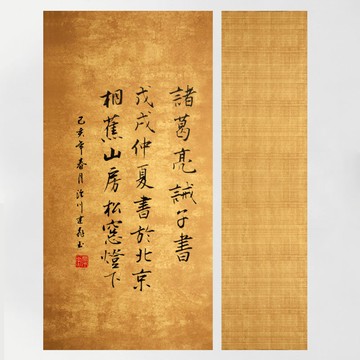 諸葛亮誡子書
戊戌仲夏書於北京
桐蕉山房松窓燈下
己亥年春月